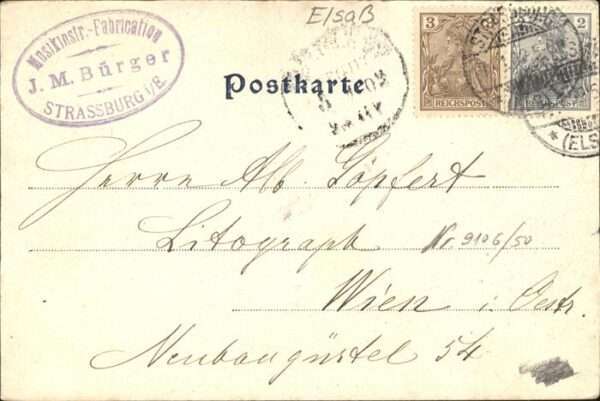 Elsaß
Musikinstr.-Fabrication
J. M. Bürger
STRASSBURG i/E
Postkarte
3
REICHSPOST
2
REICHSPOST
* (ELS
Herrn Alb. Göpfert
Litograph
Nr. 9106/50
Wien i. Oestr.
Neubaugürtel 54